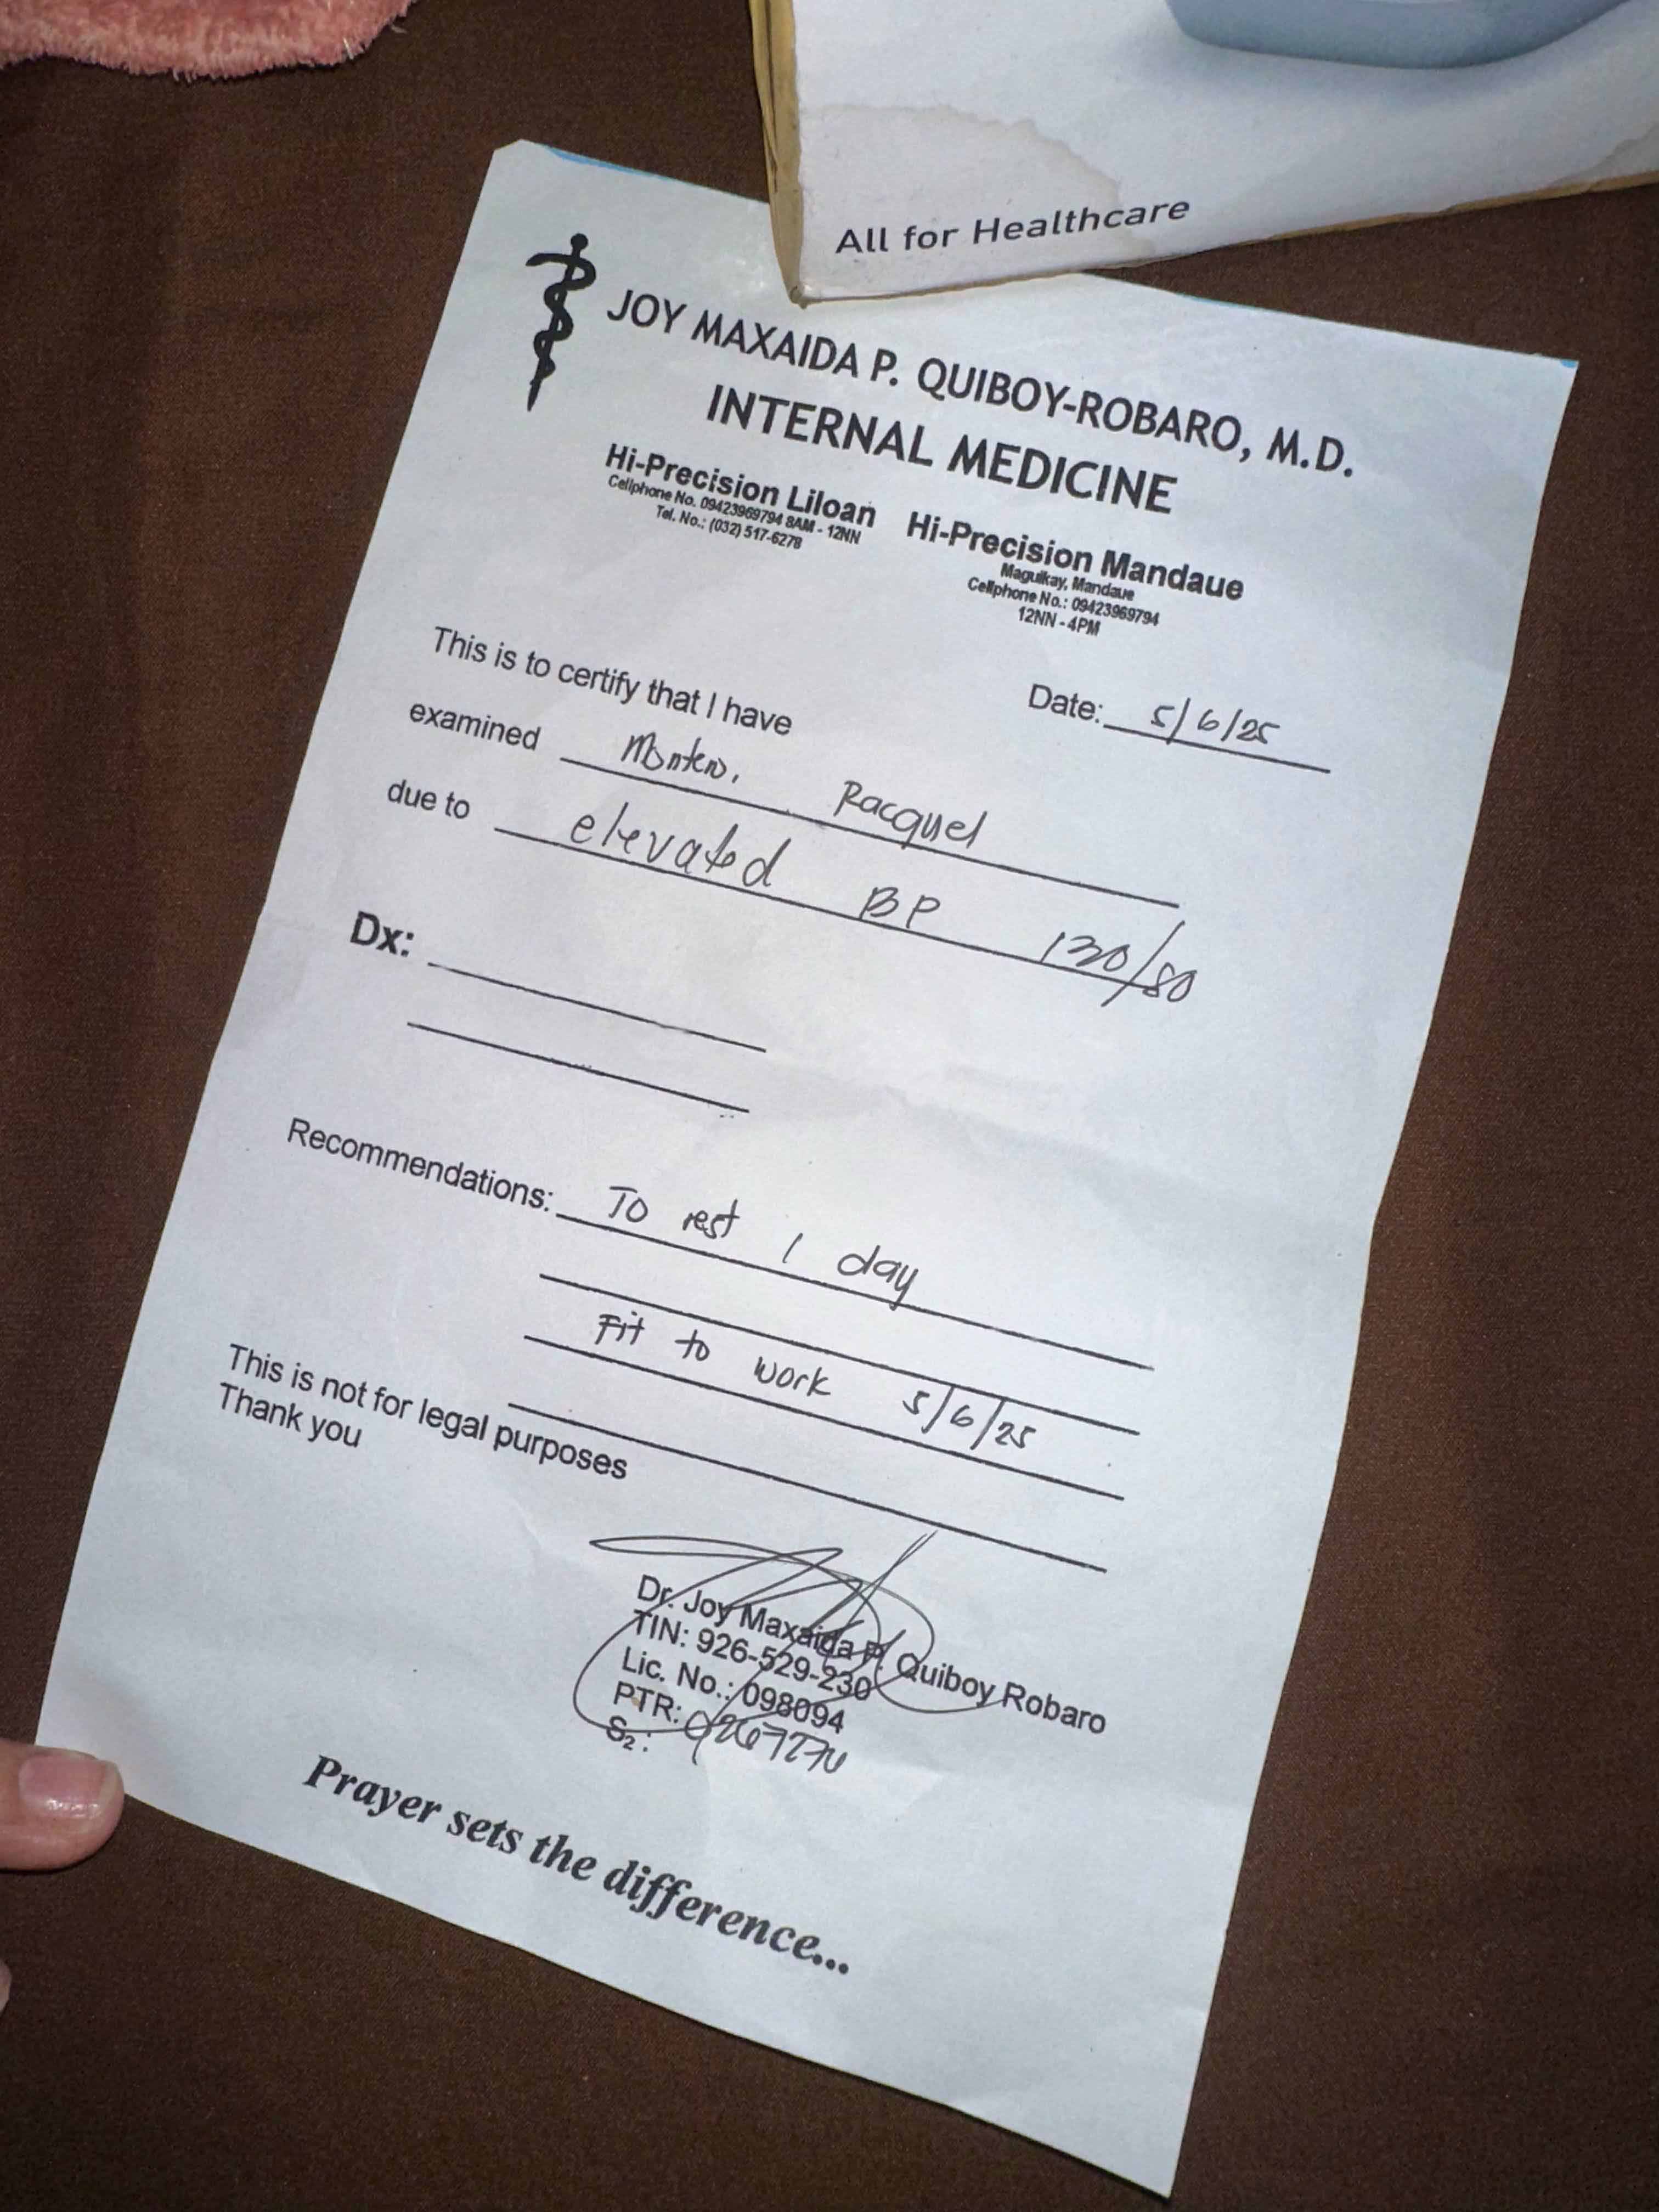 All for Healthcare
JOY MAXAIDA P. QUIBOY-ROBARO, M.D.
INTERNAL MEDICINE
Hi-Precision Liloan
Cellphone No. 09423969794 8AM - 12NN
Tel. No.: (032) 517-6278
Hi-Precision Mandaue
Maguikay, Mandaue
Cellphone No.: 09423969794
12NN - 4PM
Date: 5/6/25
This is to certify that I have
examined Racquel
due to elevated BP 130/80
Dx:
Recommendations: To rest 1 day
Fit to work 5/6/25
This is not for legal purposes
Thank you
Dr. Joy Maxaida P. Quiboy Robaro
TIN: 926-529-230
Lic. No.: 098094
PTR:
S2 :
Prayer sets the difference...